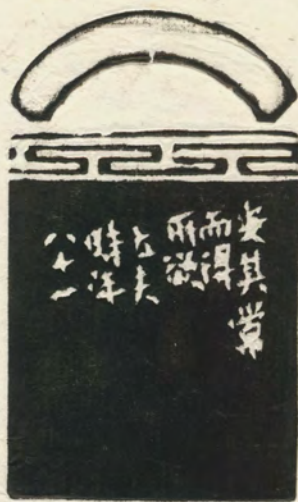 安其常
而得
所欲
夫
時年
八十一